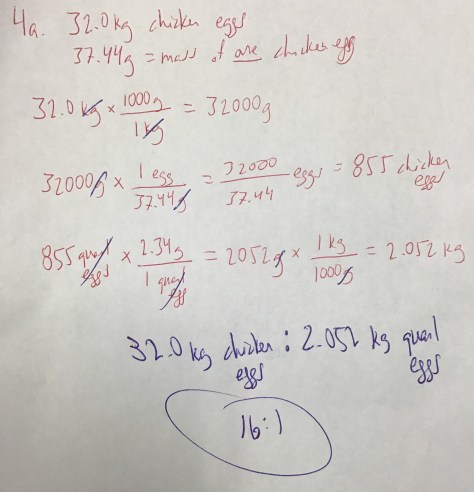 4a. 32.0 kg chicken eggs
37.44g = mass of one chicken egg
32.0 kg × 1000g / 1 kg = 32000g
32000g × 1 egg / 37.44g = 32000 / 37.44 eggs = 855 chicken eggs
855 quail eggs × 2.34g / 1 quail egg = 2052g × 1 kg / 1000g = 2.052 kg
32.0 kg chicken eggs : 2.052 kg quail eggs
16:1